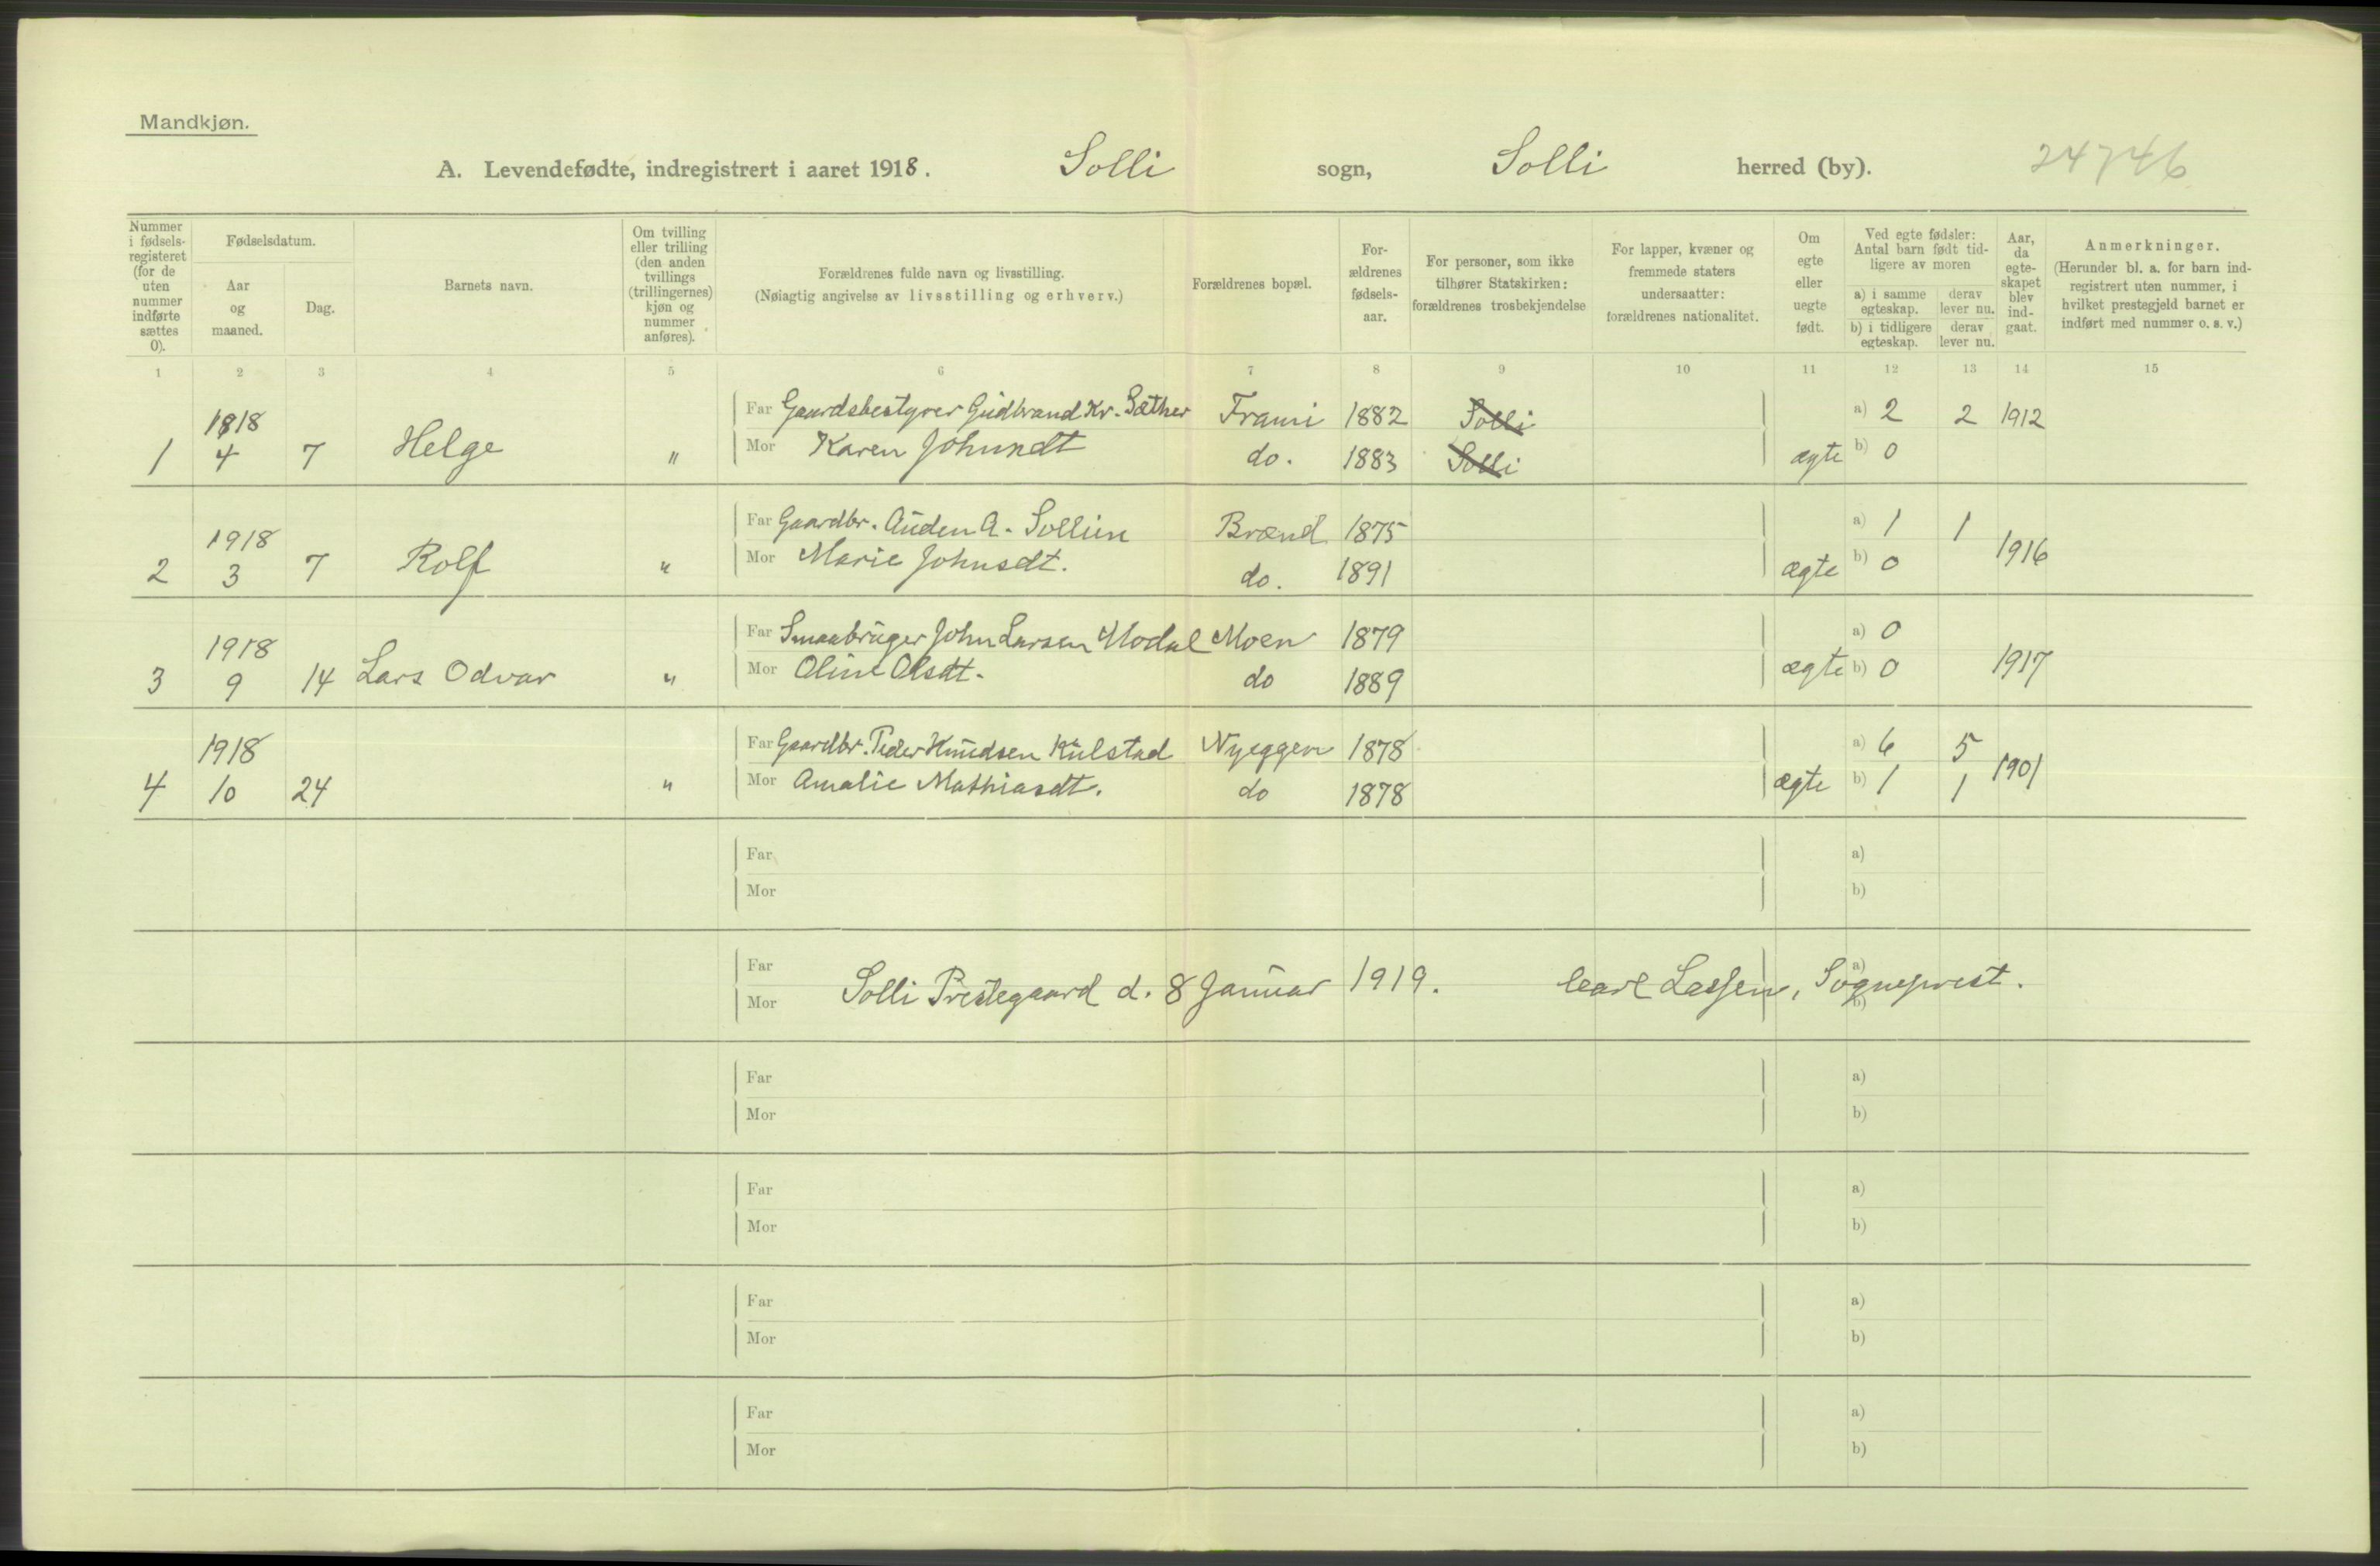 Mandkjøn.
A. Levendefødte, indregistrert i aaret 1918. Solli sogn, Solli herred (by). 24746
Nummer i fødselsregisteret (for de uten nummer indførte sættes 0).
Fødselsdatum.
Aar og maaned.
Dag.
Barnets navn.
Om tvilling eller trilling (den anden tvillings (trillingernes) kjøn og nummer anføres).
Forældrenes fulde navn og livsstilling.
(Nøiagtig angivelse av livsstilling og erhverv.)
Forældrenes bopæl.
Forældrenes fødselsaar.
For personer, som ikke tilhører Statskirken: forældrenes trosbekjendelse
For lapper, kvæner og fremmede staters undersaatter: forældrenes nationalitet.
Om egte eller uegte født.
Ved egte fødsler: Antal barn født tidligere av moren
a) i samme egteskap. derav lever nu.
b) i tidligere egteskap. derav lever nu.
Aar, da egteskapet blev indgaat.
Anmerkninger.
(Herunder bl. a. for barn indregistrert uten nummer, i hvilket prestegjeld barnet er indført med nummer o. s. v.)
1 2 3 4 5 6 7 8 9 10 11 12 13 14 15
1918 Far Gaardsbestyrer Gudbrand Kr. Sæther Frami 1882 Solli a) 2 2 1912
1 4 7 Helge " Mor Karen Johnsdt do. 1883 Solli ægte b) 0
1918 Far Gaardbr. Auden A. Sollien Brænd 1875 a) 1 1 1916
2 3 7 Rolf " Mor Marie Johnsdt. do. 1891 ægte b) 0
1918 Far Smaabruger John Larsen Modal Moen 1879 a) 0
3 9 14 Lars Odvar " Mor Oline Olsdt. do 1889 ægte b) 0 1917
1918 Far Gaardbr. Peder Knudsen Kulstad Nyeggen 1878 a) 6 5 1901
4 10 24 " Mor Amalie Mathiasdt. do 1878 ægte b) 1 1
Far a)
Mor b)
Far a)
Solli Prestegaard d. 8 Januar 1919. Carl Lassen, Sogneprest.
Mor b)
Far a)
Mor b)
Far a)
Mor b)
Far a)
Mor b)
Far a)
Mor b)